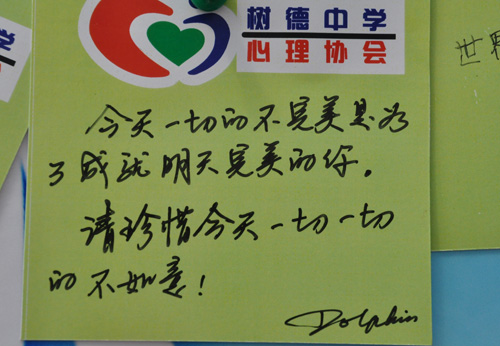 树德中学
心理协会
中学
协会
世界
今天一切的不完美是为
了成就明天完美的你。
请珍惜今天一切一切
的不如意!
Dolphin